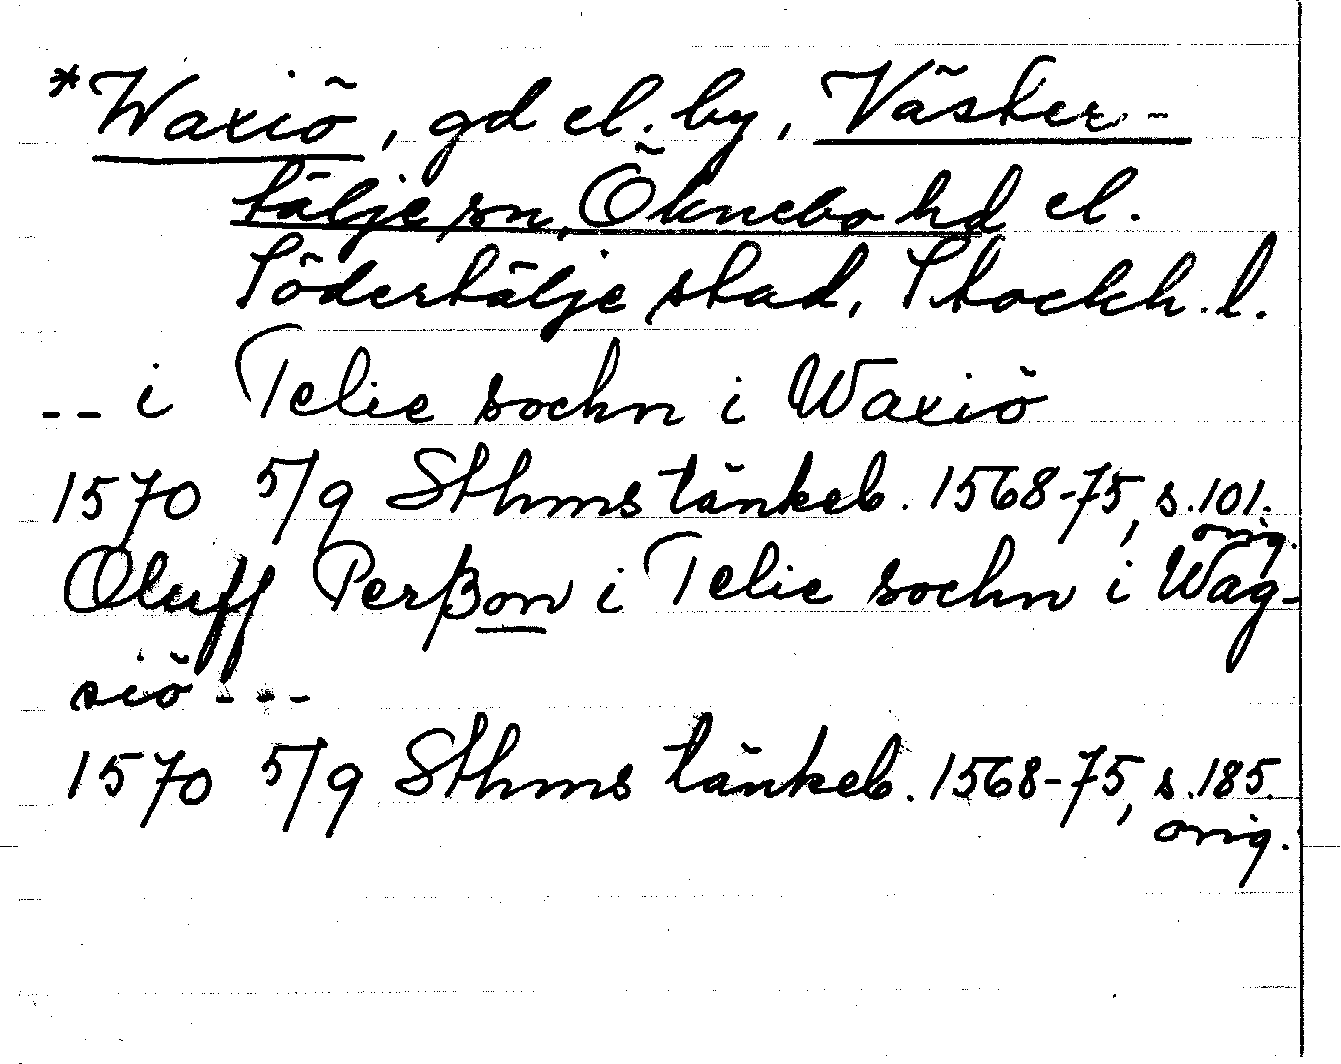 *Waxiö, gd el. by, Väster-
tälje sn, Öknebo hd el.
Södertälje stad, Stockh. l.
-- i Telie sochn i Waxiö
1570 5/9 Sthms tänkeb. 1568-75, s. 101.
orig.
Oluff Perßon i Telie sochn i Wag-
siö ---
1570 5/9 Sthms tänkeb. 1568-75, s. 185.
orig.